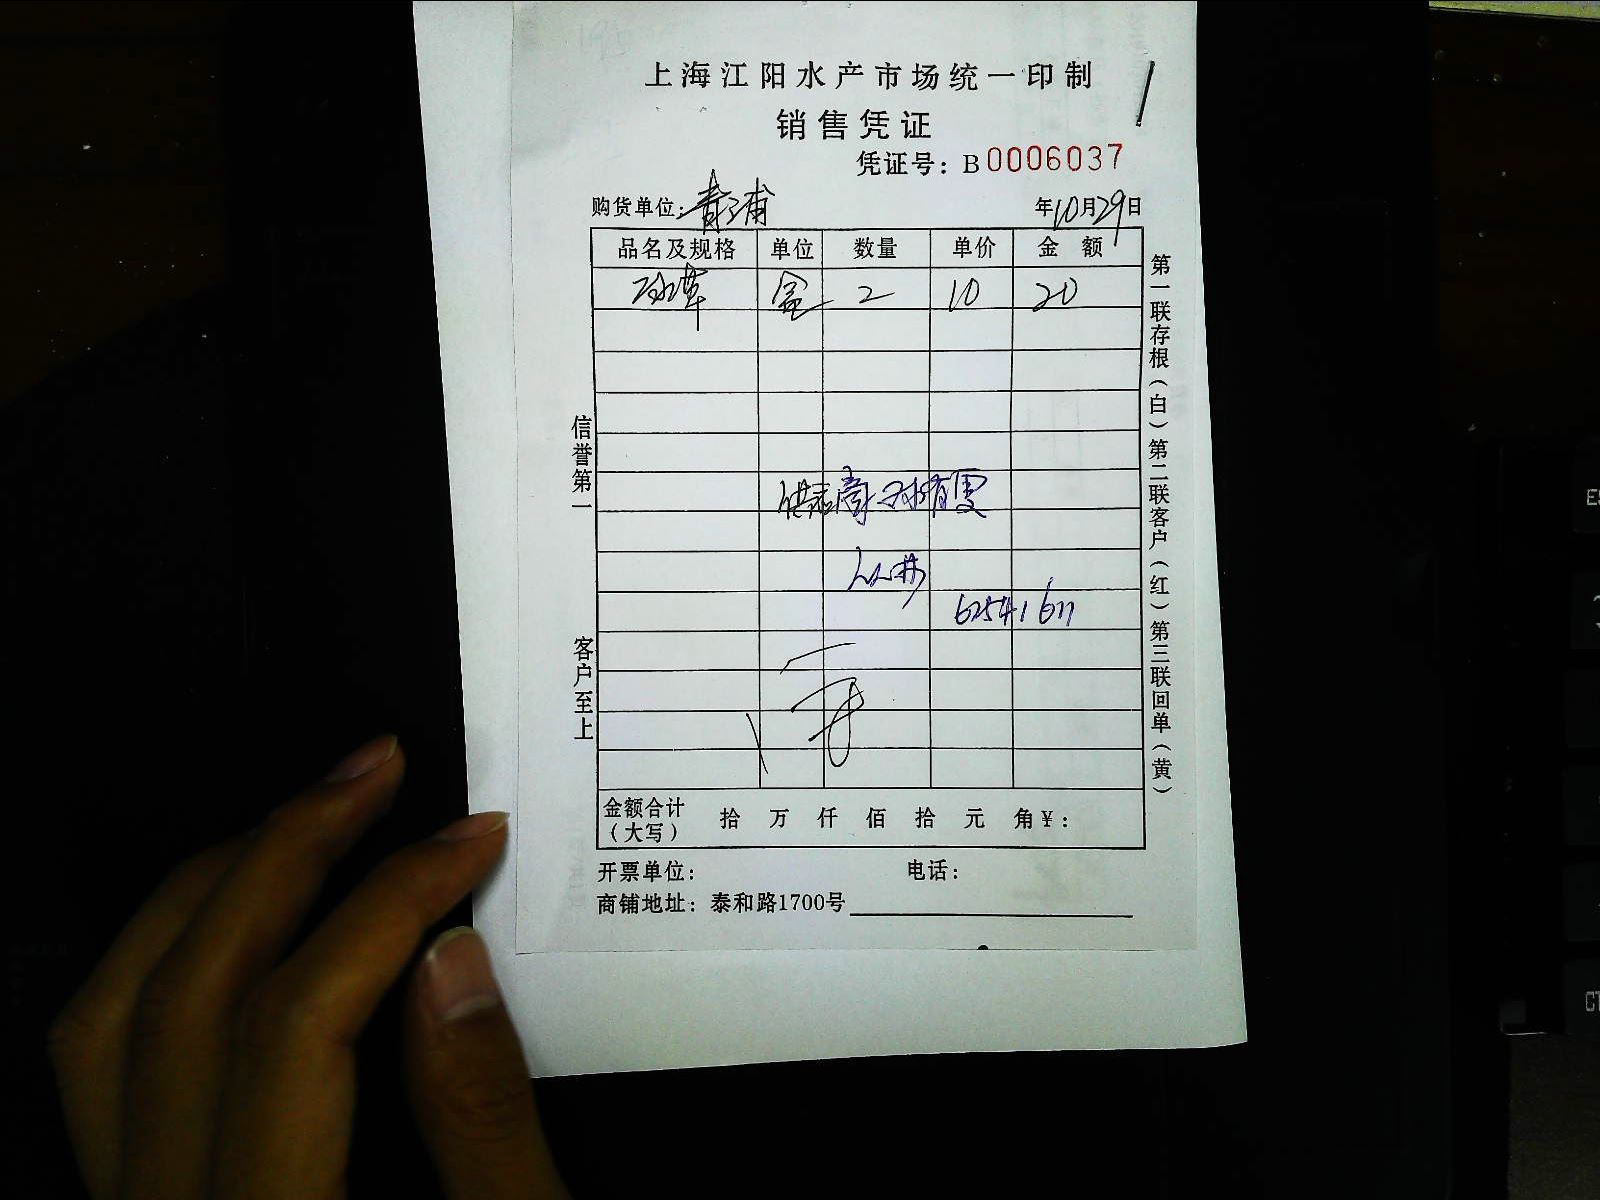 上海江阳水产市场统一印制
销售凭证
凭证号：B0006037
购货单位：青浦 年10月29日
品名及规格 单位 数量 单价 金额
冰草 盒 2 10 20
62541611
金额合计（大写） 拾 万 仟 佰 拾 元 角 ¥：
开票单位： 电话：
商铺地址：泰和路1700号
信誉第一 客户至上
第一联存根（白）第二联客户（红）第三联回单（黄）